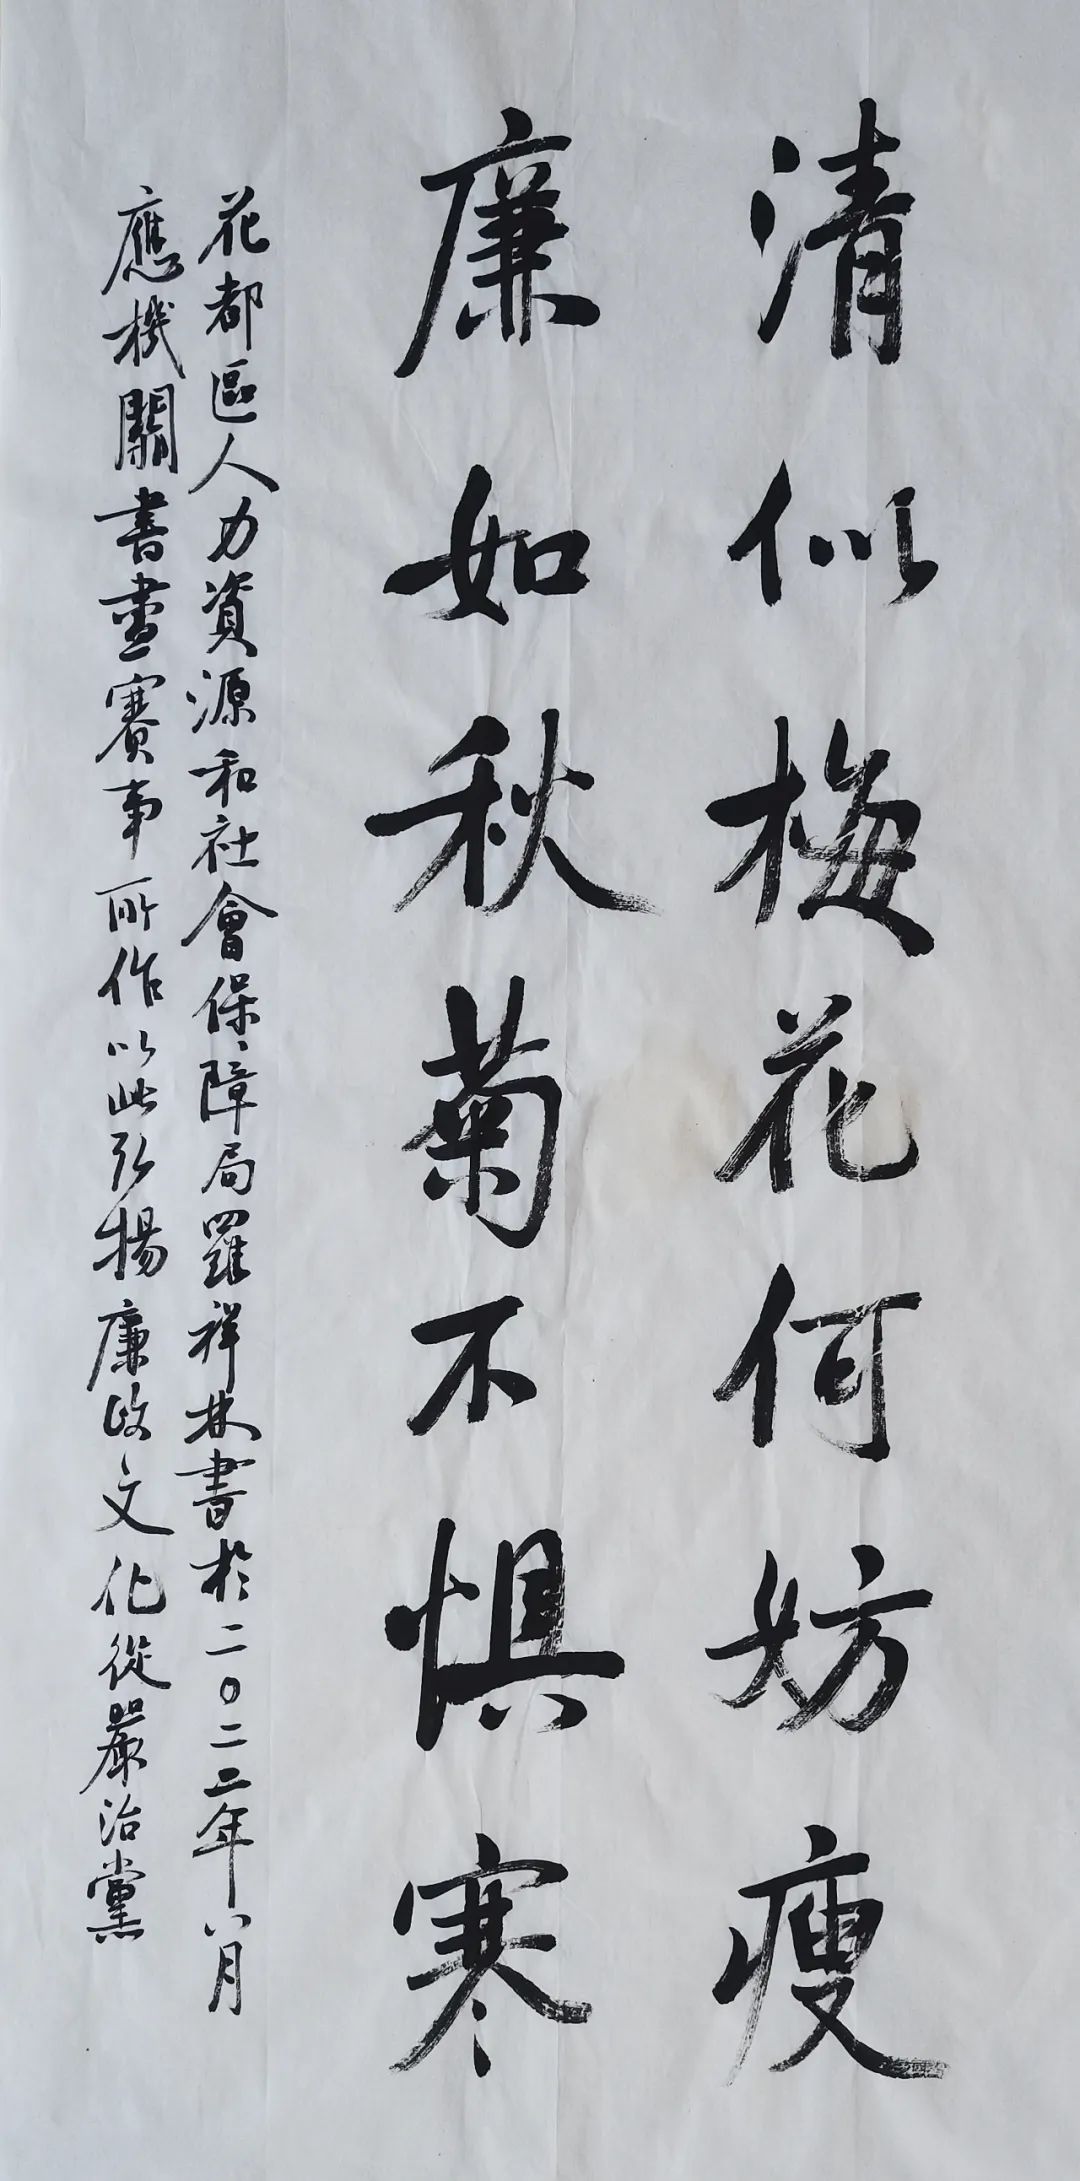 清似梅花何妨瘦
廉如秋菊不惧寒
花都區人力資源和社會保障局羅祥林書於二〇二二年八月
應機關書畫賽事所作以此弘揚廉政文化從嚴治黨